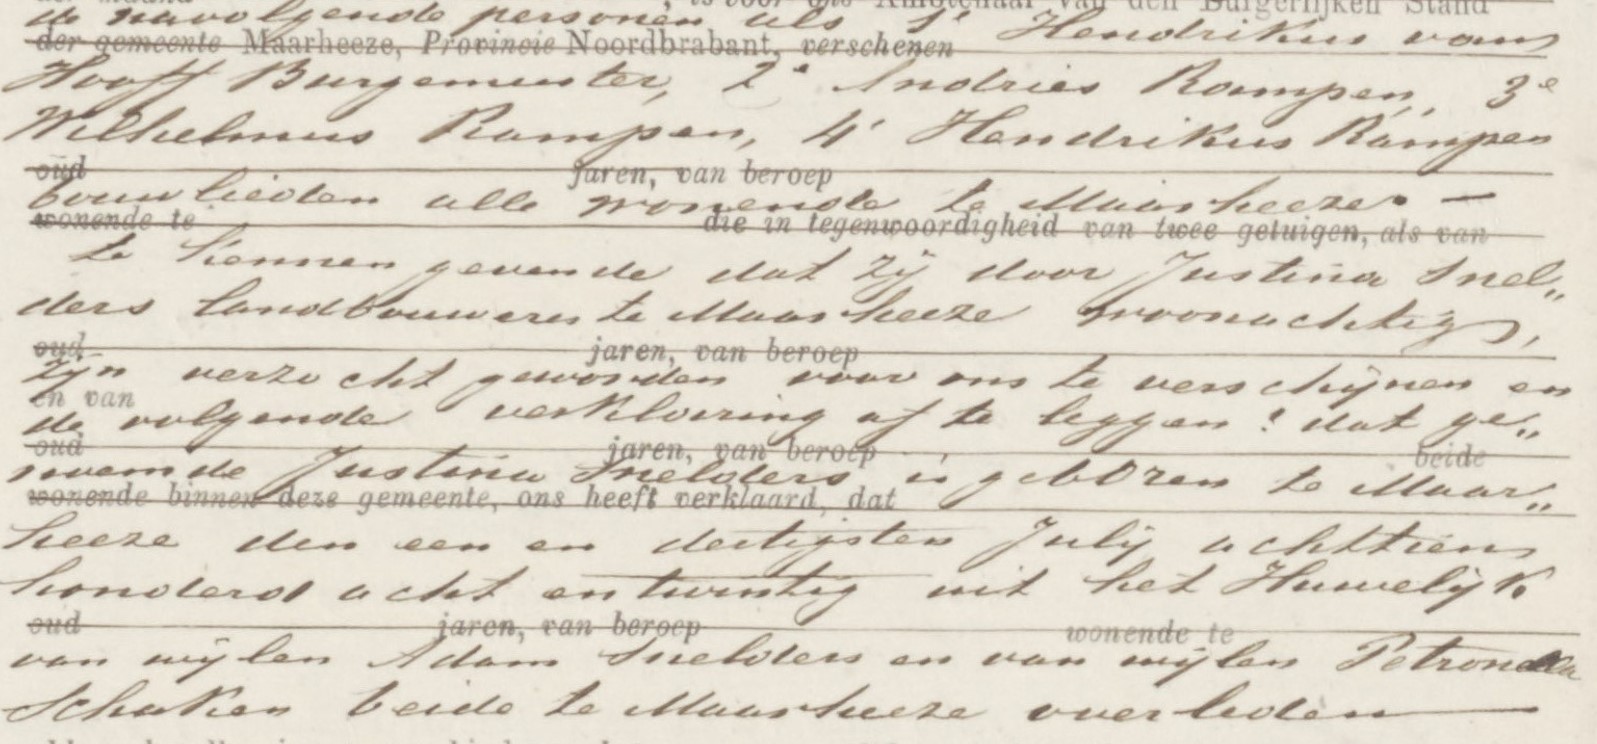 is voor ons Ambtenaar van den Burgerlijken Stand
de navolgende personen als 1e Hendrikus van
der gemeente Maarheeze, Provincie Noordbrabant, verschenen
Hooff Burgemeester, 2e Andries Rampen, 3e
Wilhelmus Rampen, 4e Hendrikus Rampen
oud jaren, van beroep
bouwlieden alle wonende te Maarheeze. —
wonende te die in tegenwoordigheid van twee getuigen, als van
te kennen gevende dat zij door Justina Snel„
ders landbouweres te Maarheeze woonachtig,
oud jaren, van beroep
zijn verzocht geworden voor ons te verschijnen en
en van
de volgende verklaring af te leggen: dat ge„
oud jaren, van beroep beide
noemde Justina Snelders is geboren te Maar„
wonende binnen deze gemeente, ons heeft verklaard, dat
heeze den een en dertigsten Julij achttien
honderd acht en twintig uit het Huwelijk
oud jaren, van beroep wonende te
van wijlen Adam Snelders en van wijlen Petronella
Schaken beide te Maarheeze overleden —